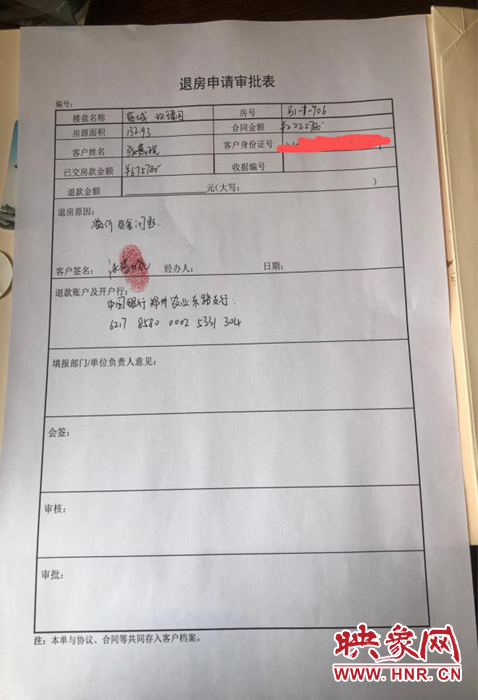 退房申请审批表
编号:
楼盘名称 玫瑰园 房号 B1-1-706
房源面积 132.93 合同金额 ¥2225780
客户姓名 客户身份证号
已交房款金额 ¥675780 收据编号
退款金额 元(大写: )
退房原因:
资金问题.
客户签名: 经办人: 日期:
退款账户及开户行:
中国银行郑州农业东路支行.
6217 8580 0002 5331 304
填报部门/单位负责人意见:
会签:
审核:
审批:
注:本单与协议、合同等共同存入客户档案。
映象网
HNR.CN